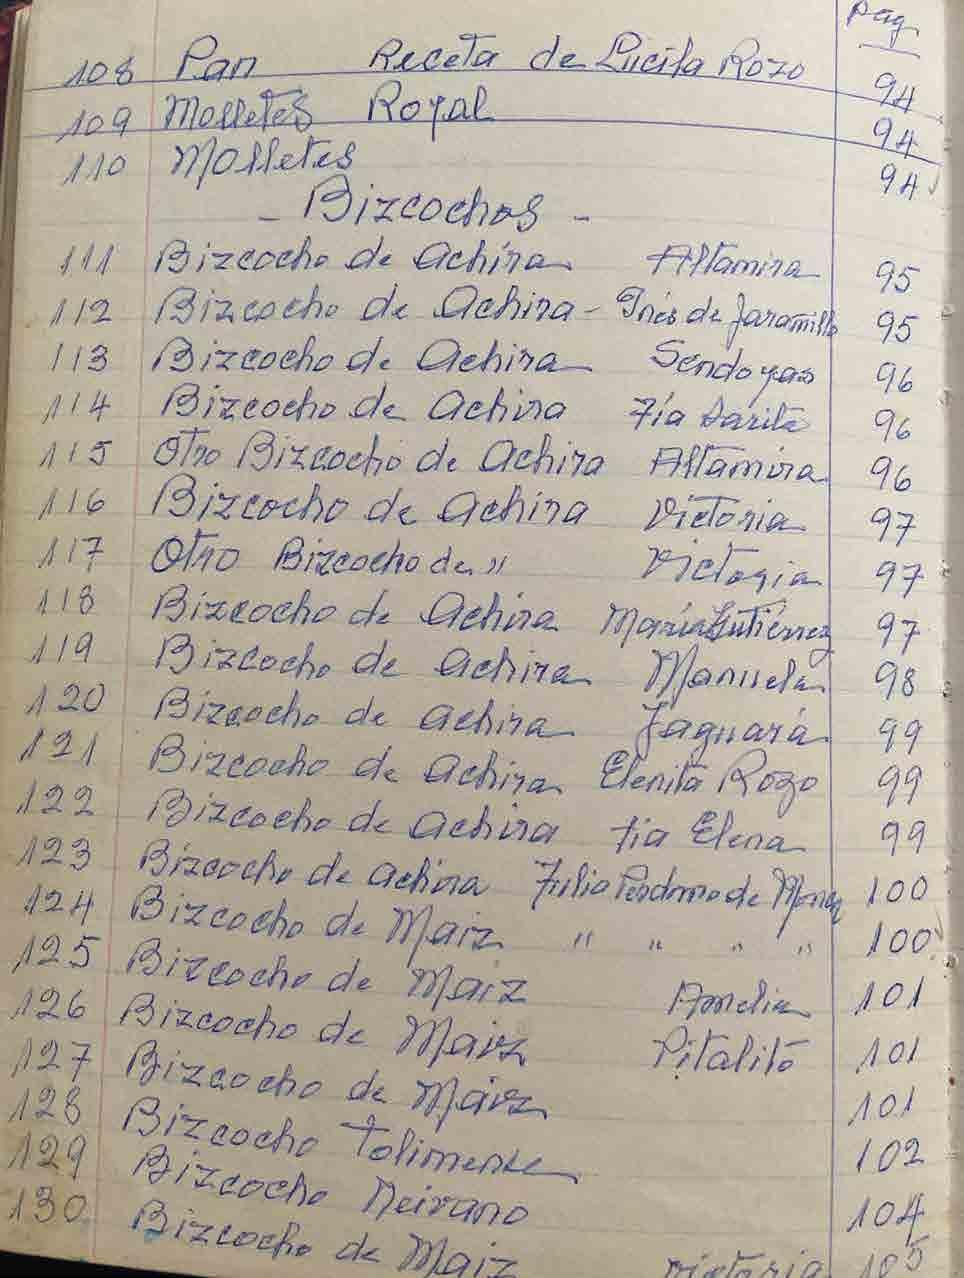 pág
108 Pan Receta de Lucila Rozo 94
109 Molletes Royal 94
110 Molletes 94
- Bizcochos -
111 Bizcocho de Achira Altamira 95
112 Bizcocho de Achira - Inés de Jaramillo 95
113 Bizcocho de Achira Sendoyas 96
114 Bizcocho de Achira Tía Sarita 96
115 Otro Bizcocho de Achira Altamira 96
116 Bizcocho de Achira Victoria 97
117 Otro Bizcocho de " Victoria 97
118 Bizcocho de Achira María Gutiérrez 97
119 Bizcocho de Achira Manuela 98
120 Bizcocho de Achira Yaguará 99
121 Bizcocho de Achira Elenita Rozo 99
122 Bizcocho de Achira tía Elena 99
123 Bizcocho de Achira Julia Perdomo de 100
124 Bizcocho de Maiz " " " " 100
125 Bizcocho de Maiz Amelia 101
126 Bizcocho de Maiz Pitalito 101
127 Bizcocho de Maiz 101
128 Bizcocho tolimense 102
129 Bizcocho Neivano 104
130 Bizcocho de Maiz victoria 105